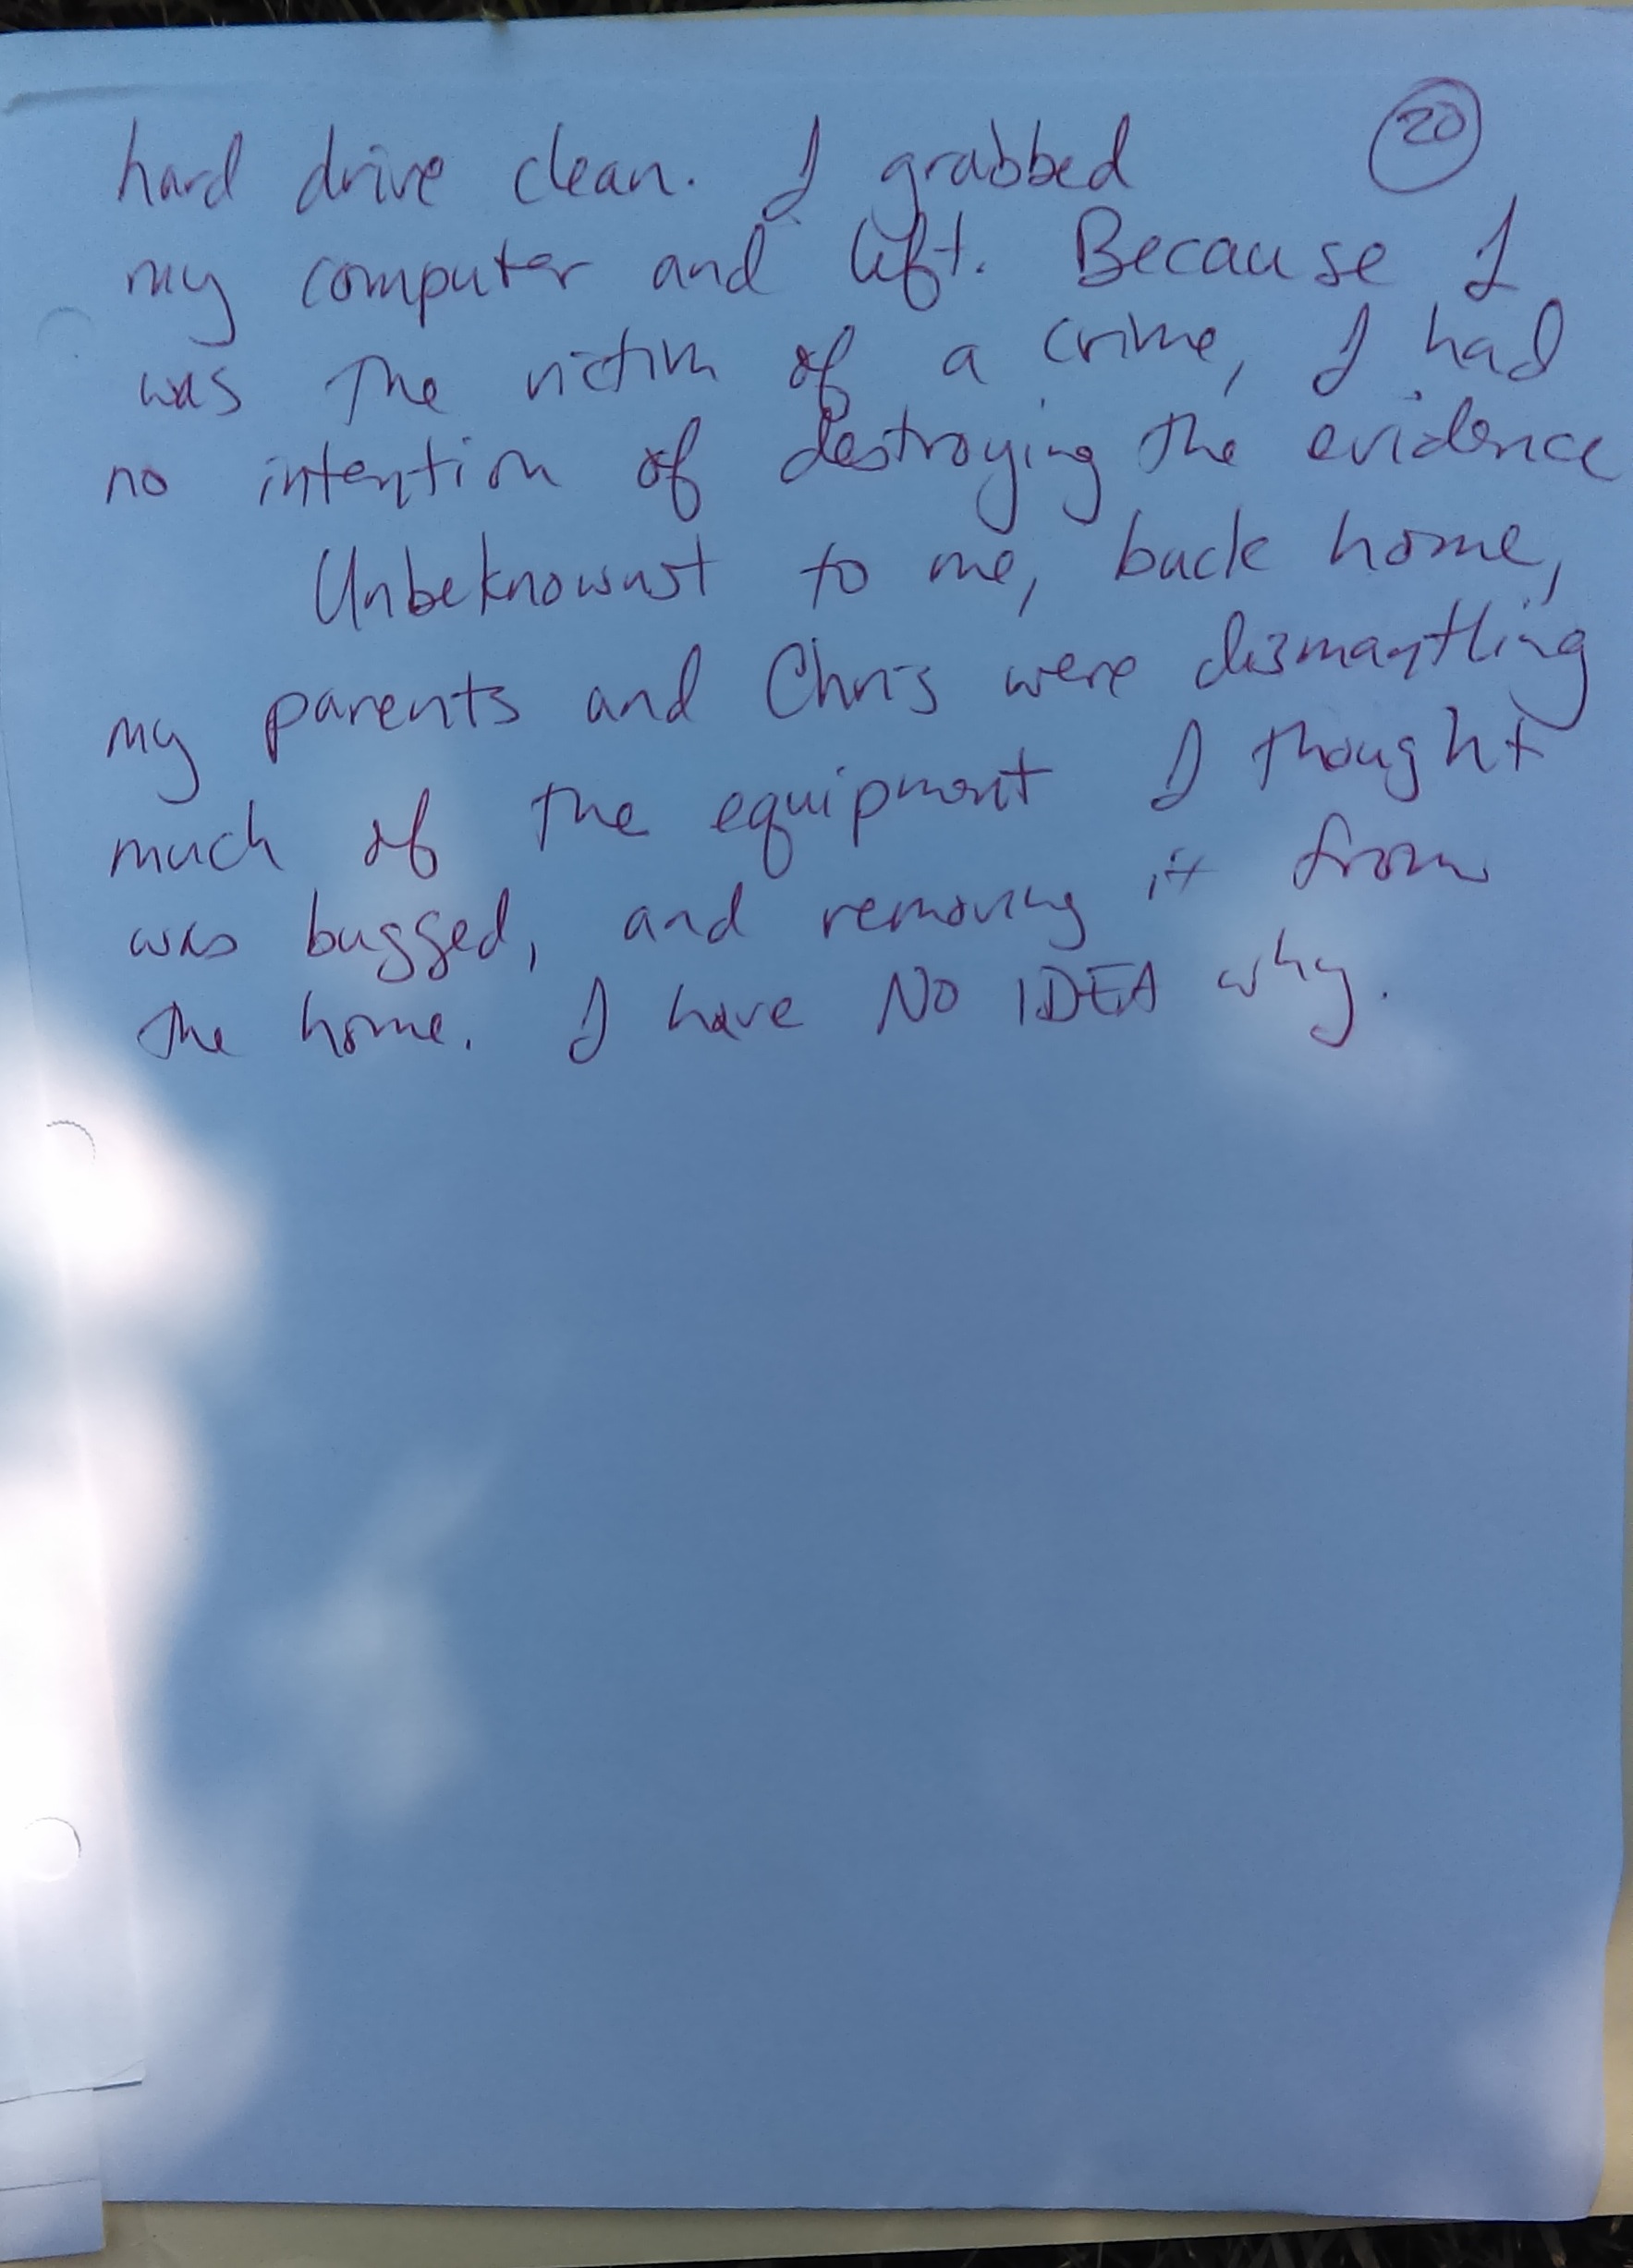 20
hard drive clean. I grabbed
my computer and left. Because I
was the victim of a crime, I had
no intention of destroying the evidence
Unbeknownst to me, back home,
my parents and Chris were dismantling
much of the equipment I thought
was bugged, and removing it from
the home. I have NO IDEA why.